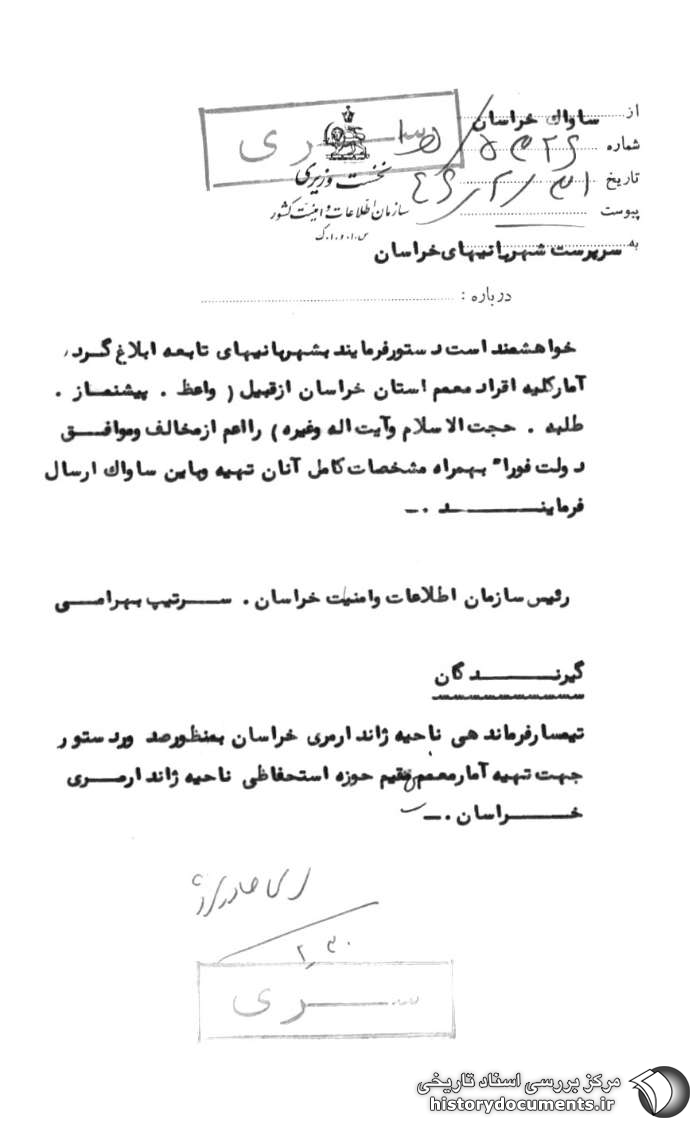 سری
نخست وزیری
سازمان اطلاعات و امنیت کشور
س.ا.و.ا.ک
از ساواک خراسان
شماره
تاریخ ۳۱/۲/۴۶
پیوست
به سرپرست شهربانیهای خراسان
درباره :
خواهشمند است دستور فرمایند بشهربانیهای تابعه ابلاغ گردد
آمار کلیه افراد معمم استان خراسان از قبیل ( واعظ . پیشنماز .
طلبه . حجت الاسلام وآیت اله وغیره ) را اعم از مخالف وموافق
دولت فورا" بهمراه مشخصات کامل آنان تهیه وباین ساواک ارسال
فرمایند .ـ
رئیس سازمان اطلاعات وامنیت خراسان . سرتیپ بهرامی
گیرندگان
تیمسار فرماندهی ناحیه ژاندارمری خراسان بمنظور صدور دستور
جهت تهیه آمار معمم مقیم حوزه استحفاظی ناحیه ژاندارمری
خراسان .ـ
۳۰/۲
سری
مرکز بررسی اسناد تاریخی
historydocuments.ir